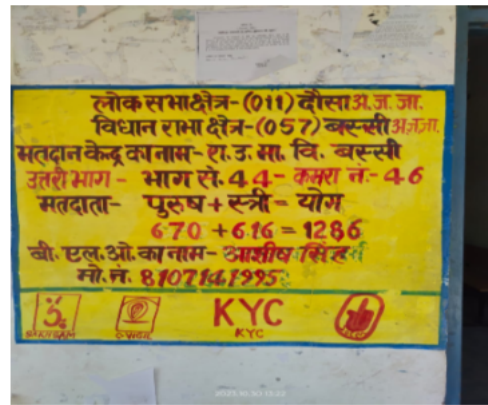 लोक सभा क्षेत्र-(011) दौसा अ.ज.जा.
विधान सभा क्षेत्र-(057) बस्सी अ.ज.जा.
मतदान केन्द्र का नाम- रा. उ. मा. वि. बस्सी
उत्तरी भाग- भाग सं. 44- कमरा नं.-46
मतदाता- पुरुष + स्त्री = योग
670 + 616 = 1286
बी. एल. ओ. का नाम- आशीष सिंह
मो. नं. 8107141995
SAKSHAM
C-VIGIL
KYC
KYC
2023.10.30 13:22